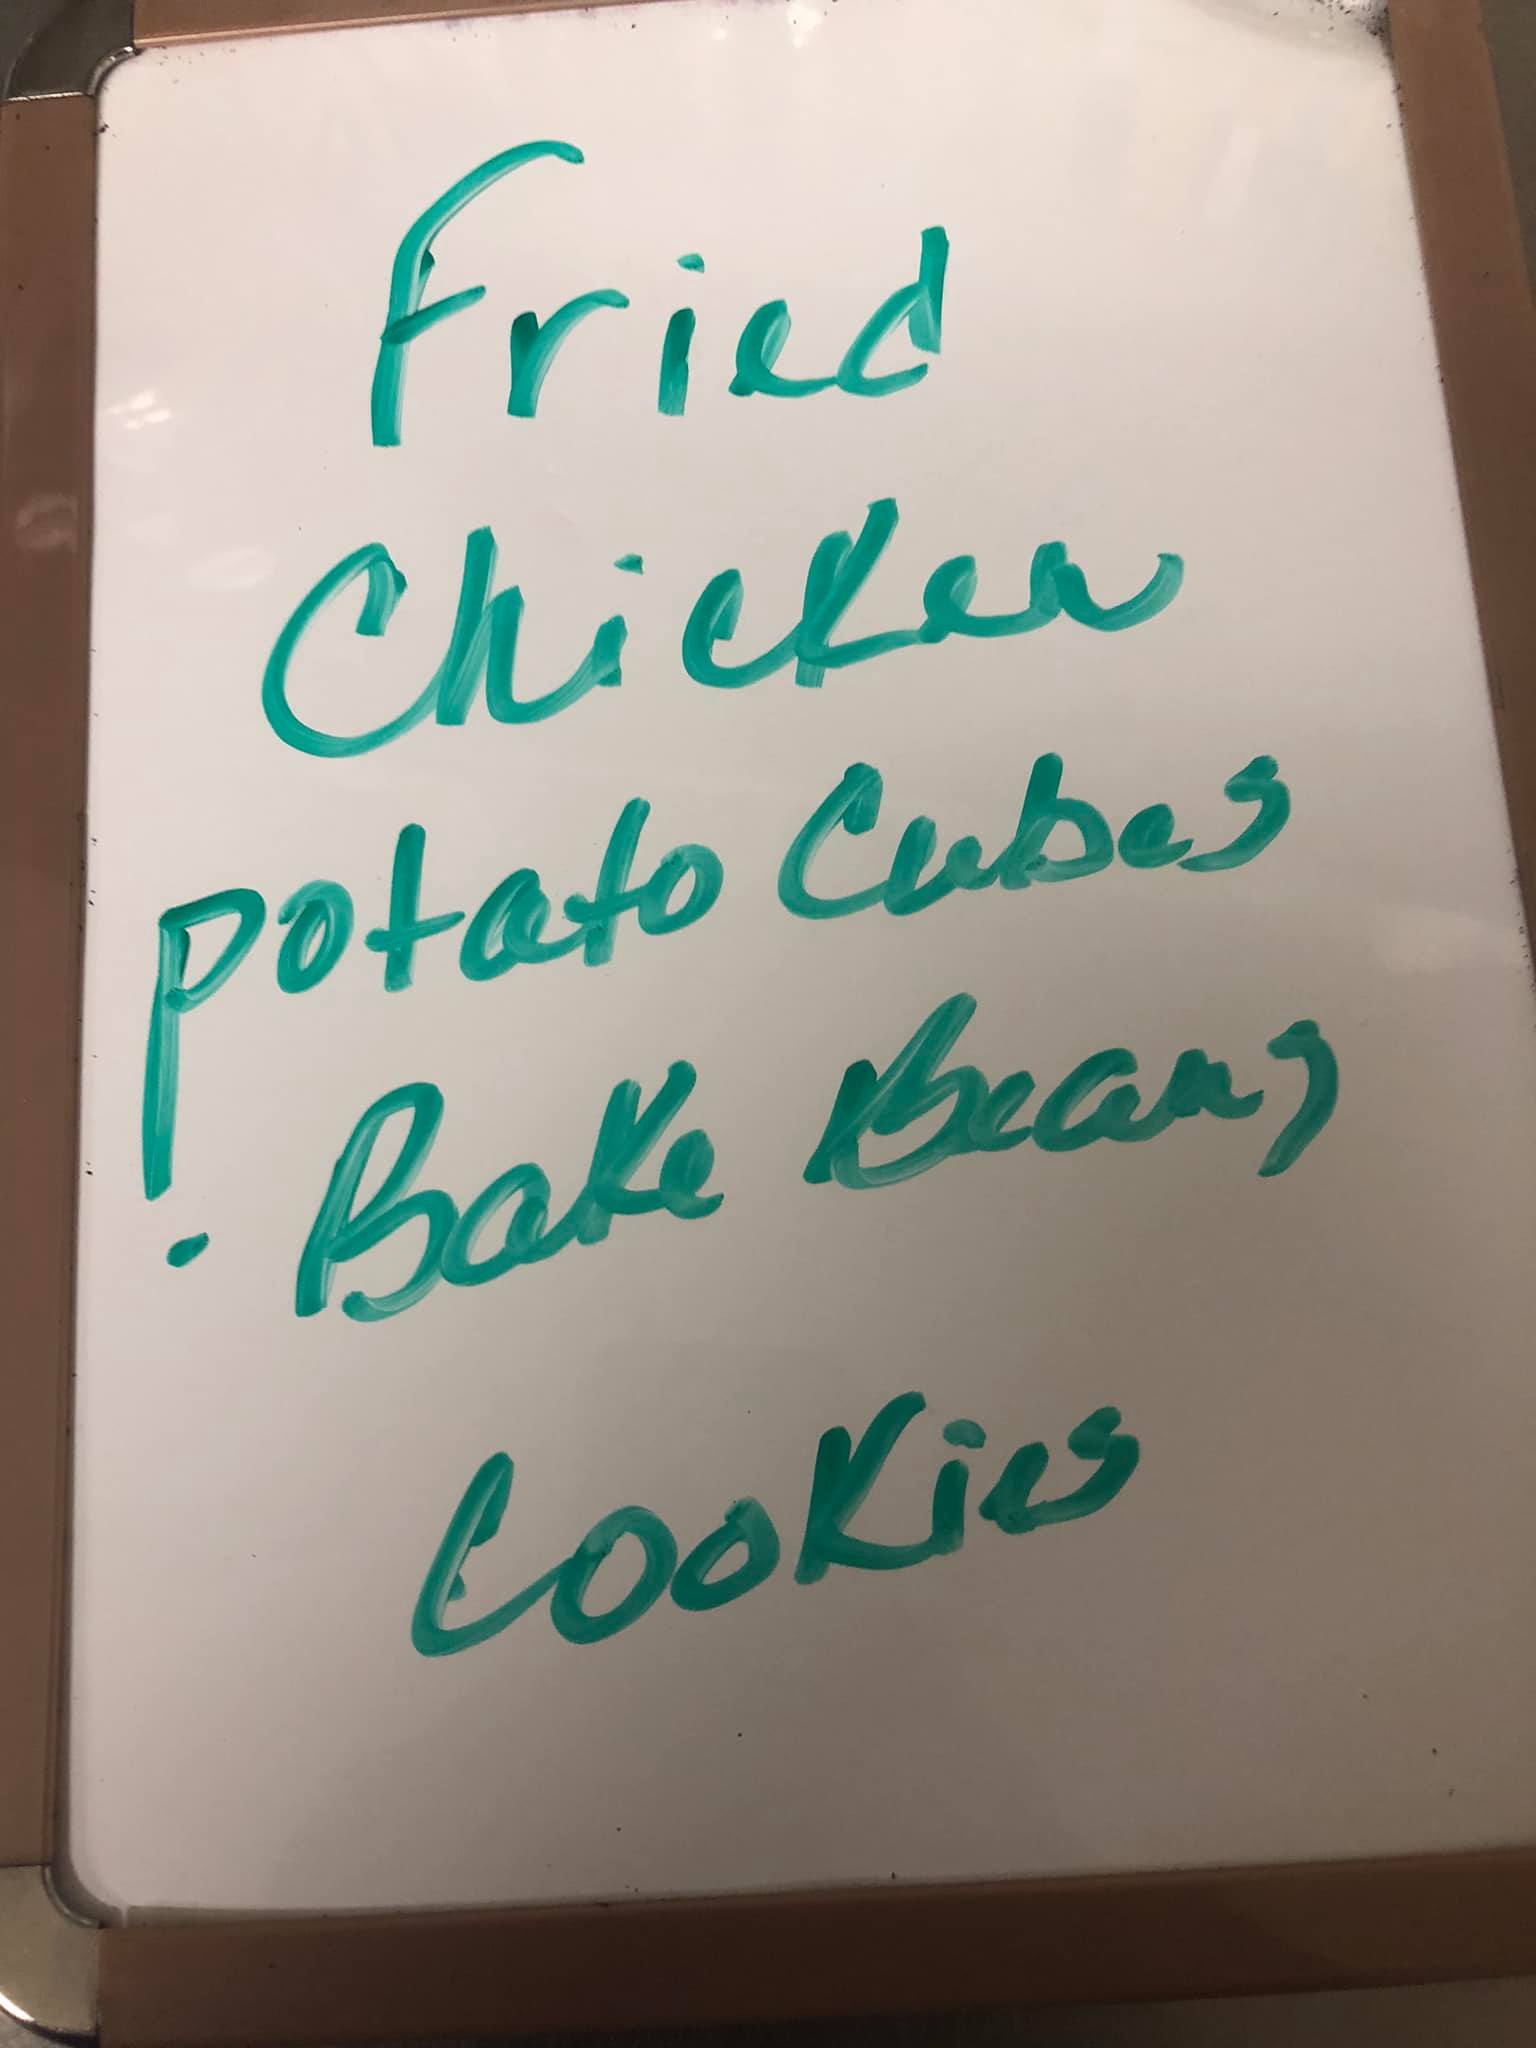 Fried
Chicken
Potato Cubes
Bake Beans
Cookies